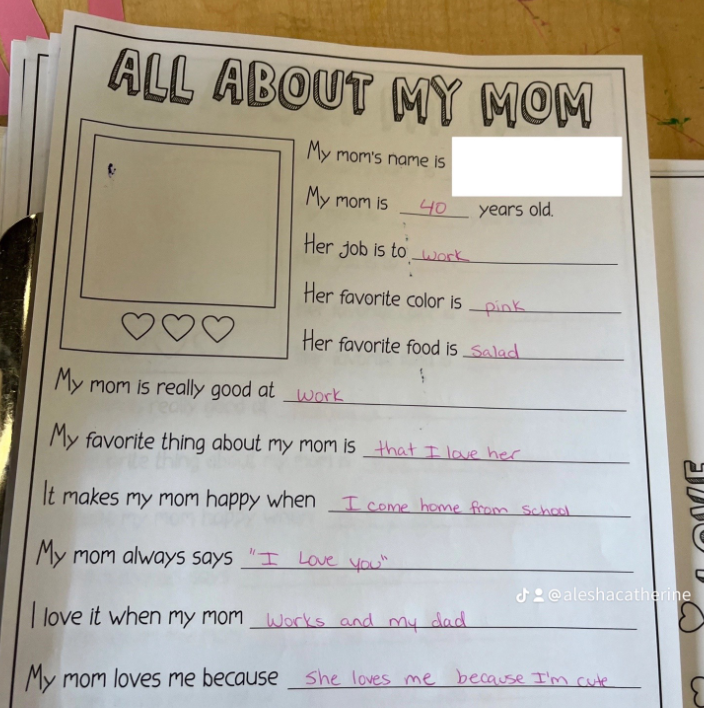 ALL ABOUT MY MOM
My mom's name is
My mom is 40 years old.
Her job is to work
Her favorite color is pink
Her favorite food is salad
My mom is really good at work
My favorite thing about my mom is that I love her
It makes my mom happy when I come home from school
My mom always says "I Love you"
@aleshacatherine
I love it when my mom works and my dad
My mom loves me because she loves me because I'm cute